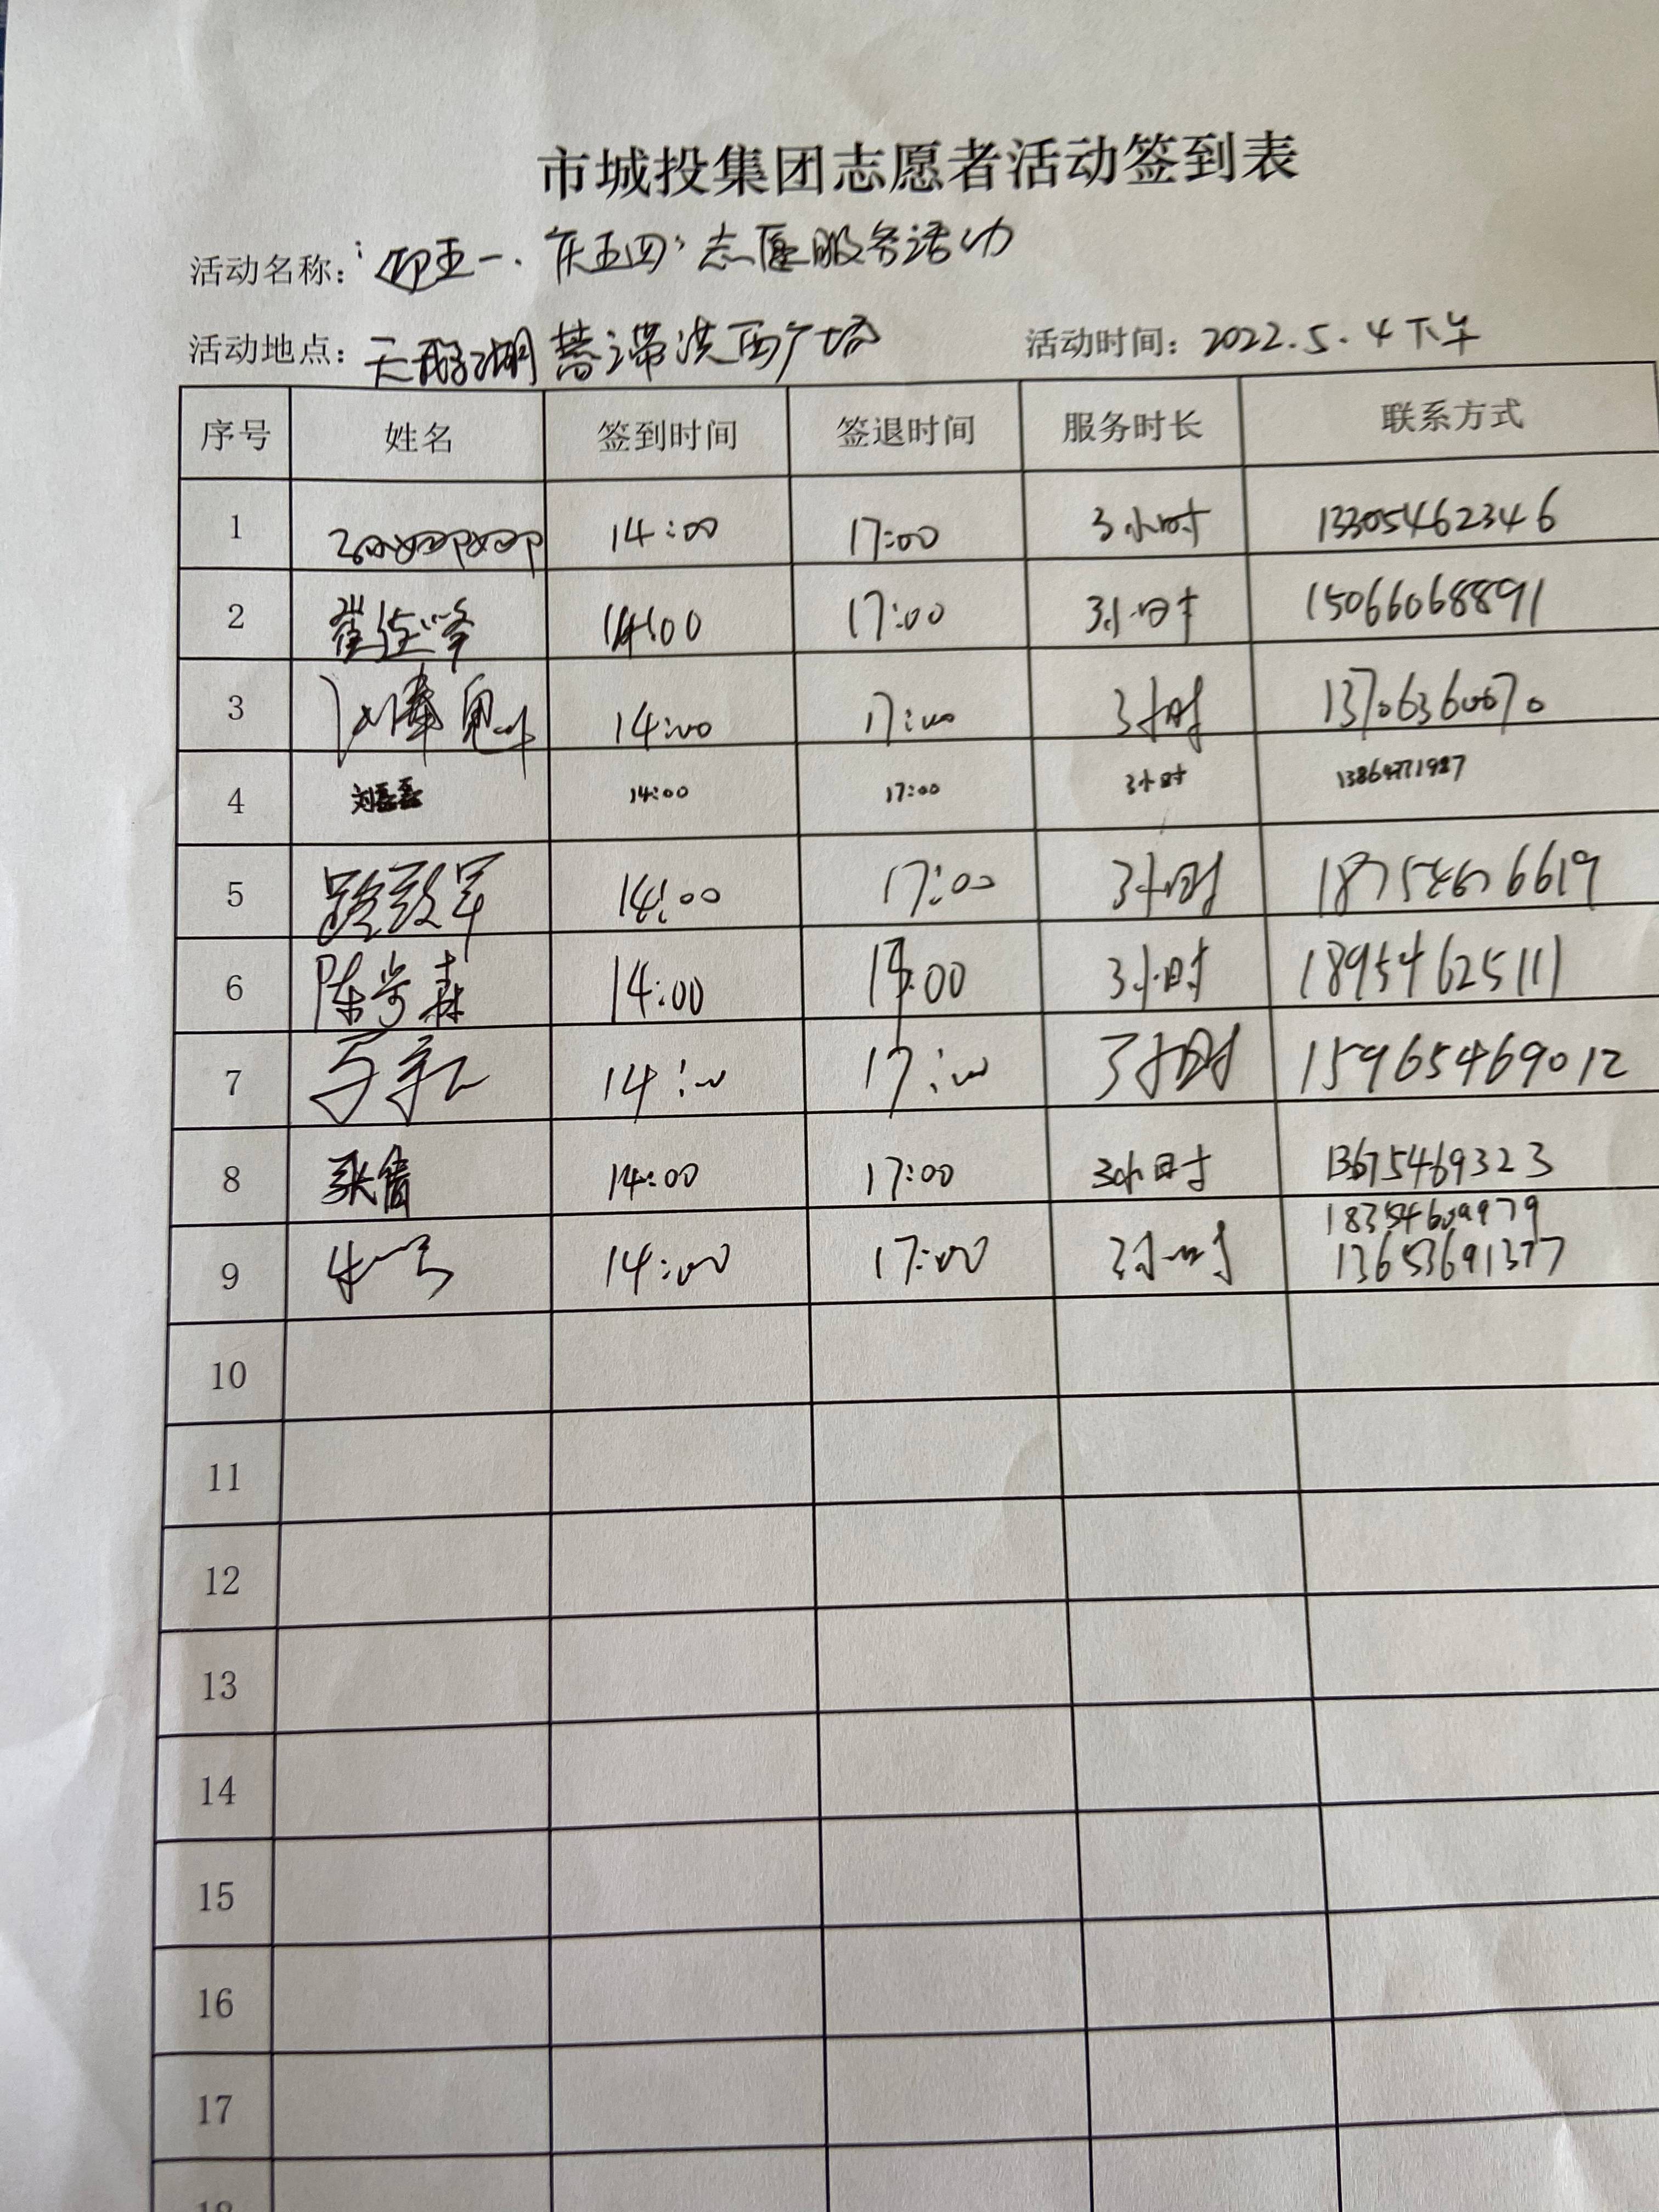 市城投集团志愿者活动签到表
活动名称：“迎五一、庆五四”志愿服务活动
活动地点：天鹅湖蓄滞洪西广场 活动时间：2022.5.4下午
序号 姓名 签到时间 签退时间 服务时长 联系方式
1 14:00 17:00 3小时 13305462346
2 14:00 17:00 3小时 15066068891
3 14:00 17:00 3小时 13706360070
4 刘磊磊 14:00 17:00 3小时
5 路致军 14:00 17:00 3小时
6 14:00 17:00 3小时 18954625111
7 14:00 17:00 3小时 15965469012
8 张倩 14:00 17:00 3小时 13675469323
18354609979
9 14:00 17:00 3小时 13653691377
10
11
12
13
14
15
16
17
18